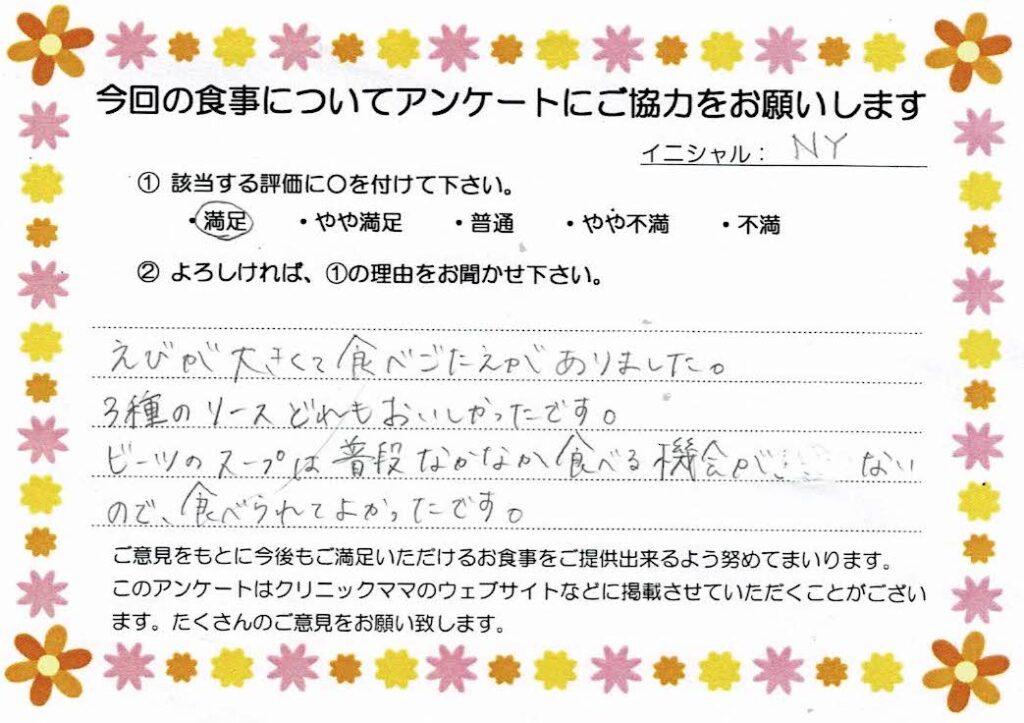 今回の食事についてアンケートにご協力をお願いします
イニシャル： NY
① 該当する評価に〇を付けて下さい。
・満足 ・やや満足 ・普通 ・やや不満 ・不満
② よろしければ、①の理由をお聞かせ下さい。
えびが大きくて食べごたえがありました。
3種のソースどれもおいしかったです。
ビーツのスープは普段なかなか食べる機会が ない
ので、食べられてよかったです。
ご意見をもとに今後もご満足いただけるお食事をご提供出来るよう努めてまいります。
このアンケートはクリニックママのウェブサイトなどに掲載させていただくことがござい
ます。たくさんのご意見をお願い致します。